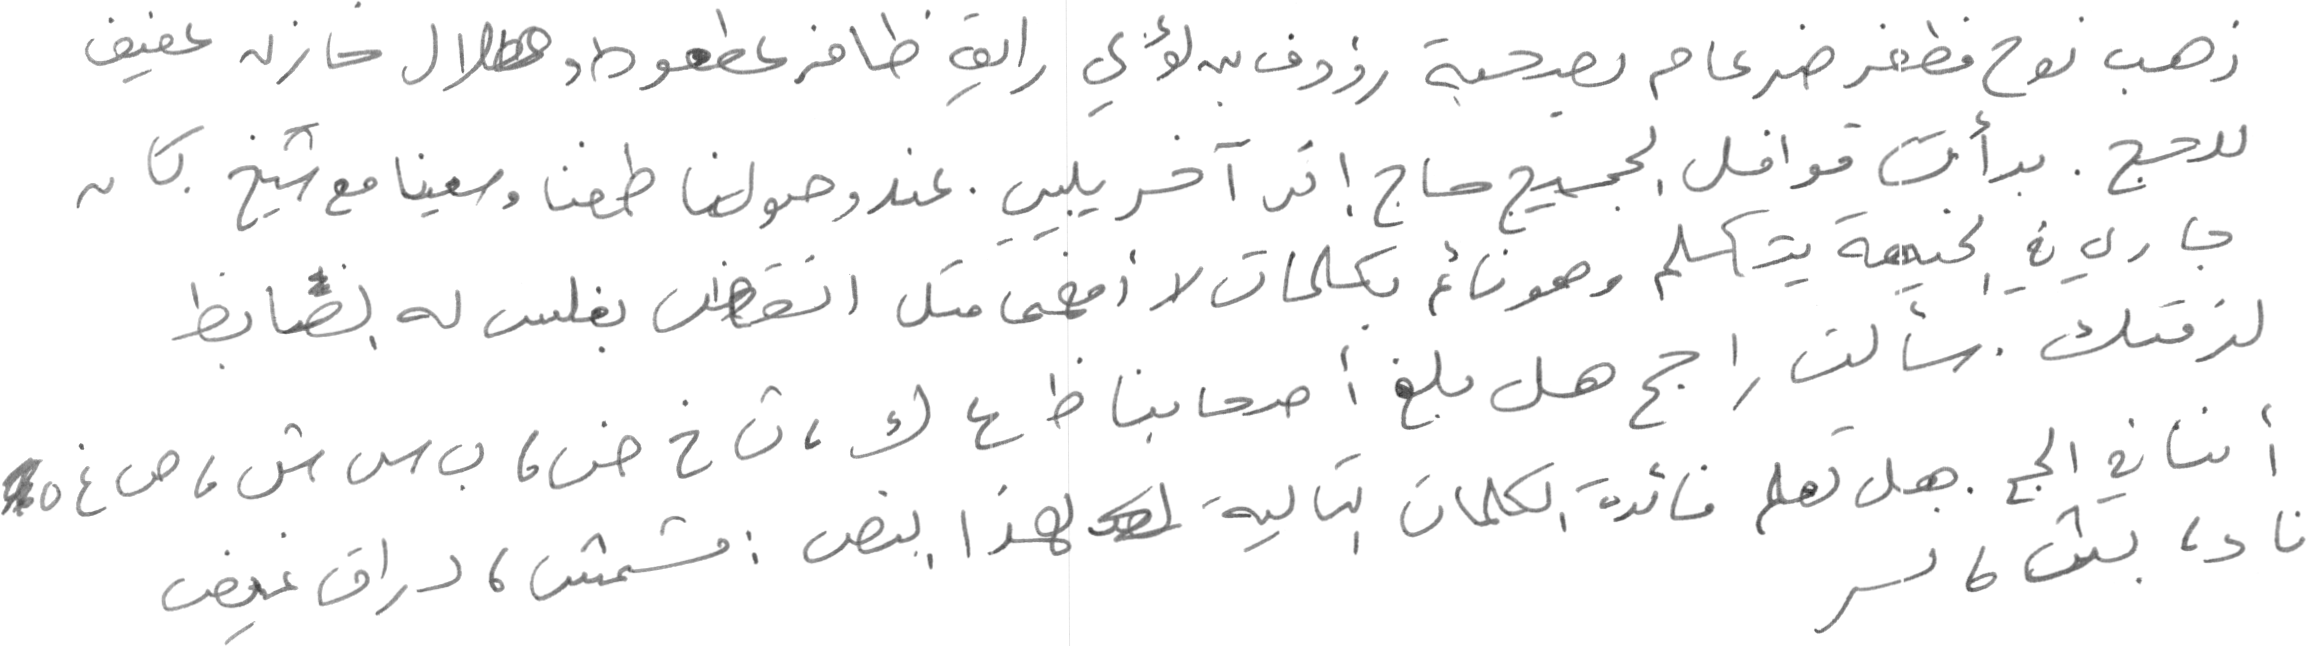 ذهب نوح مظفر ضرغام بصحبة رؤوف بن لؤي ظافر عطعوط و هلال خازن عفيف
للحج . بدأت قوافل الحجيج حاج إثر آخر يلبي . عند وصولنا طفنا وسعينا مع شيخ كان
جاري في الخيمة يتكلم وهو نائم بكلمات لا أفهمها مثل بغلس له الضابط
لزقتك . سألت راجح هل بلغ أصحابنا ظ ع ك ، ث خ ض ، ب س ش ، ص غ ه
أننا في الحج . هل تعلم فائدة الكلمات التالية لهذا النص : مشمش ، دراق
ناد ،